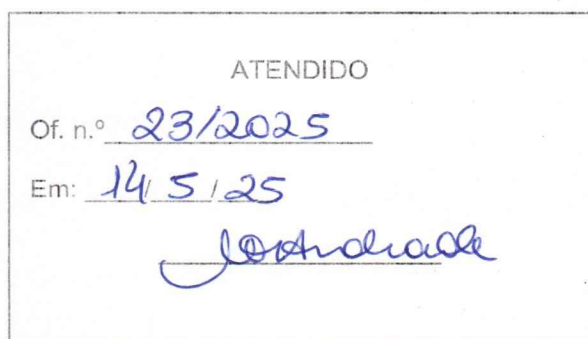 ATENDIDO
Of. n.º 23/2025
Em: 14/ 5 / 25